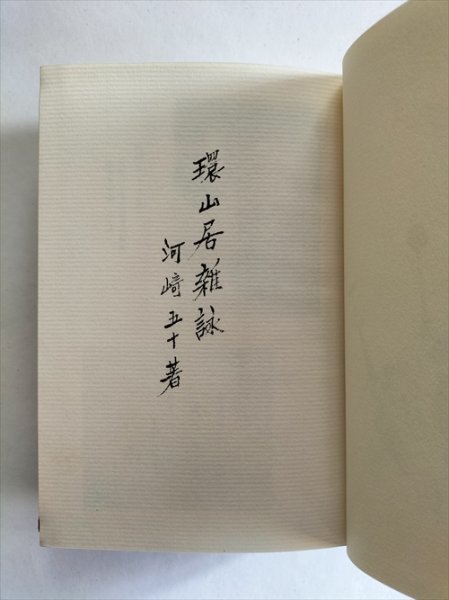 環山居雜詠
河﨑五十著